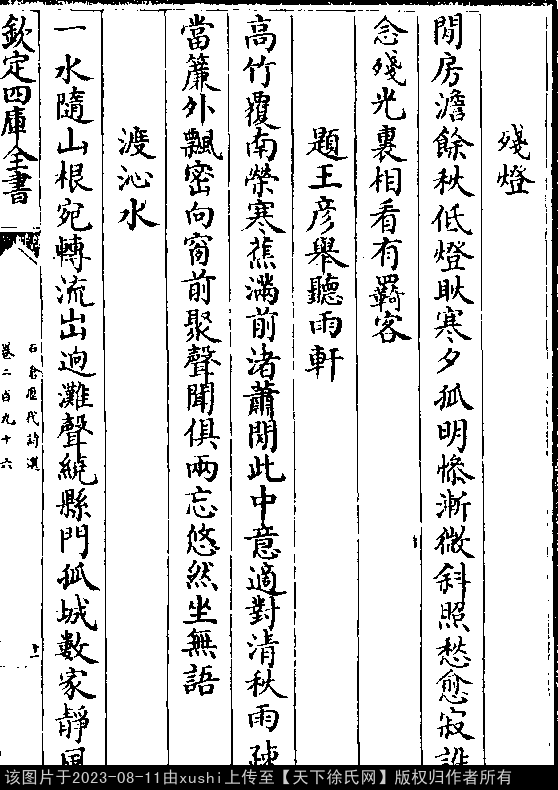 殘燈
閒房澹餘秋低燈耿寒夕孤明慘漸微斜照愁愈寂誰
念殘光裏相看有羇客
題王彦舉聽雨軒
高竹覆南榮寒蕉滿前渚蕭閒此中意適對清秋雨疎
當簾外飄密向窗前聚聲聞俱兩忘悠然坐無語
渡沁水
一水隨山根宛轉流出迥灘聲繞縣門孤城數家靜風
欽定四庫全書
石倉歷代詩選
卷二百九十六
十一
该图片于2023-08-11由xushi上传至【天下徐氏网】版权归作者所有